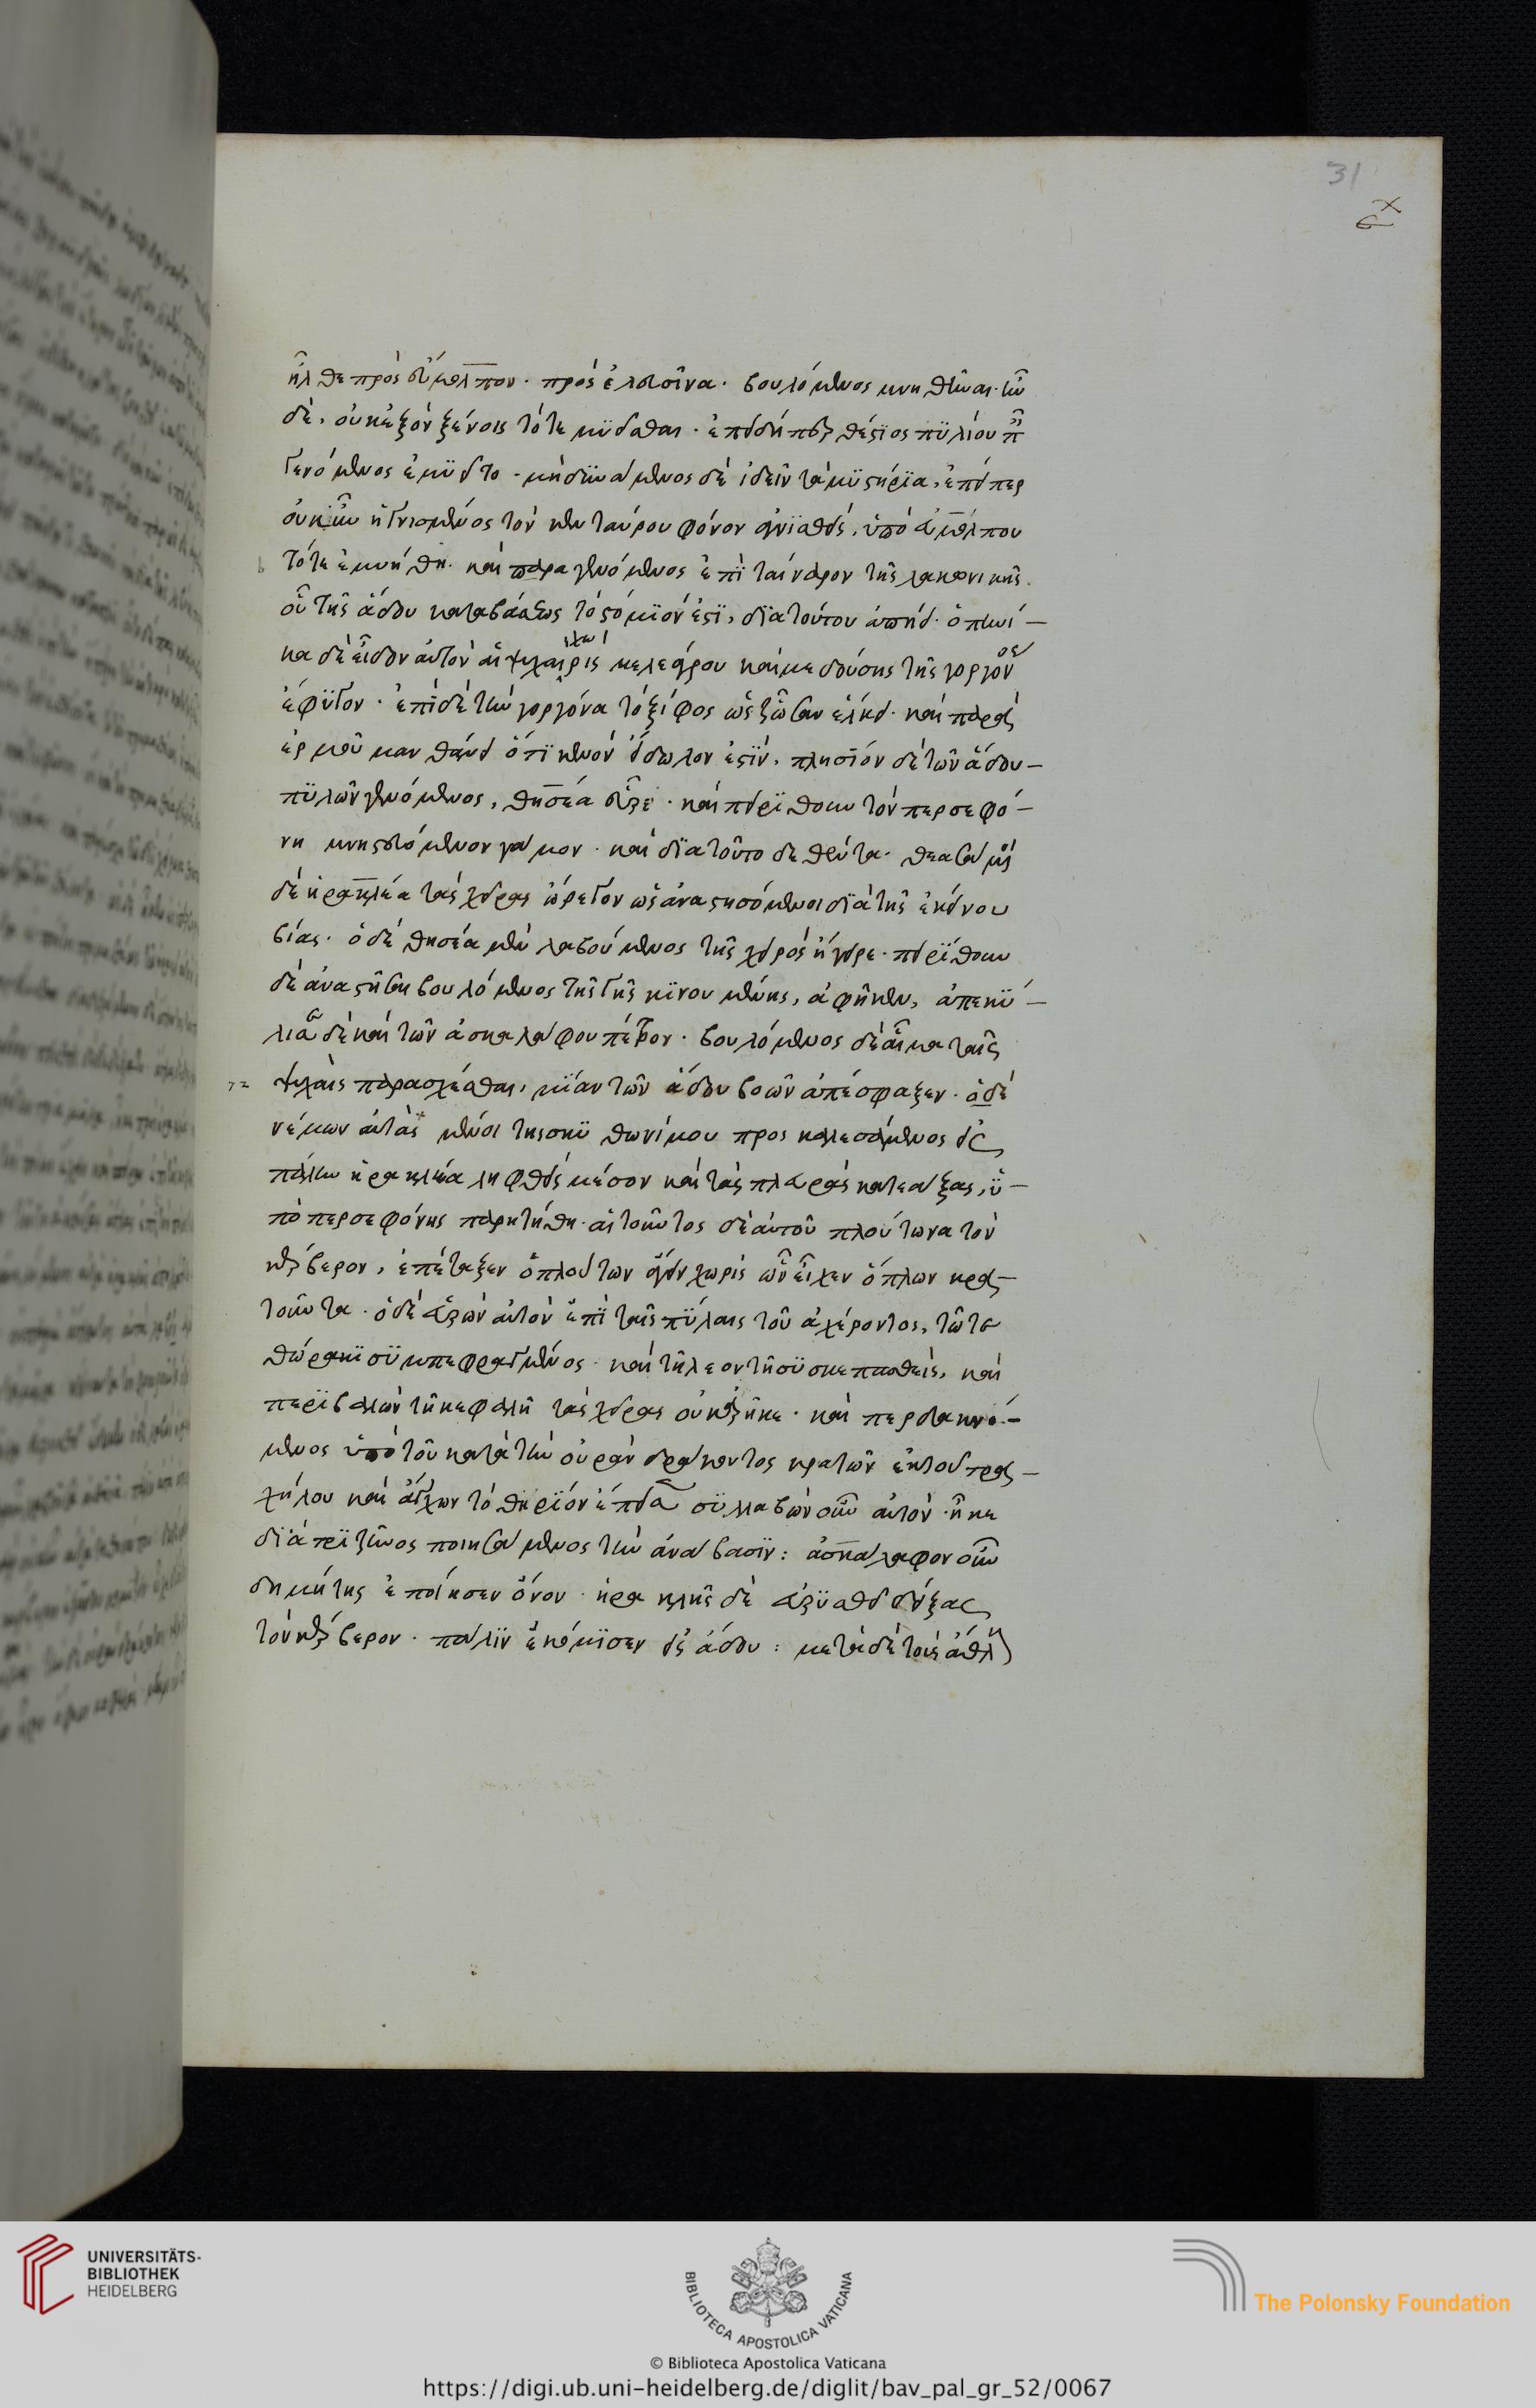 31
ἦλθε πρὸς εὔμολπον· πρὸς ἐλευσῖνα· βουλόμενος μυηθῆναι· ἦν
δὲ, οὐκ ἐξὸν ξένοις τότε μυεῖσθαι· ἐπειδήπερ θέστιος πυλίου παῖς
γενόμενος ἐμυεῖτο· μὴ δυνάμενος δὲ ἰδεῖν τὰ μυστήρια, ἐπείπερ
οὐκ ἦν ἡγνισμένος τὸν κενταύρου φόνον ἁγνισθεὶς, ὑπὸ εὐμόλπου
τότε ἐμυήθη. καὶ παραγενόμενος ἐπὶ ταίναρον τῆς λακωνικῆς.
οὗ τῆς ἅδου καταβάσεως τὸ στόμιόν ἐστι, διὰ τούτου ἀπήει· ὁπηνί-
κα δὲ εἶδον αὐτὸν αἱ ψυχαὶ χωρὶς μελεάγρου καὶ μεδούσης τῆς γοργόνος
ἔφυγον· ἐπὶ δὲ τὴν γοργόνα τὸ ξίφος ὡς ζῶσαν ἕλκει· καὶ παρὰ
ἑρμοῦ μανθάνει ὅτι κενὸν εἴδωλον ἐστὶν, πλησίον δὲ τῶν ἅδου-
πυλῶν γενόμενος, θησέα εὗρε· καὶ πειρίθουν τὸν περσεφό-
νη μνηστευόμενον γάμον· καὶ διὰ τοῦτο δεθέντα· θεασάμενοι
δὲ ἡρακλέα τὰς χεῖρας ὤρεγον ὡς ἀναστησόμενοι διὰ τῆς ἐκείνου
βίας· ὁ δὲ θησέα μὲν λαβόμενος τῆς χειρὸς ἤγειρε· πειρίθουν
δὲ ἀναστῆσαι βουλόμενος τῆς γῆς κινουμένης, ἀφῆκεν, ἀπεκύ-
λισε δὲ καὶ τῶν ἀσκαλάφου πέτρον· βουλόμενος δὲ αἷμα ταῖς
ψυχαῖς παρασχέσθαι, μίαν τῶν ἅδου βοῶν ἀπέσφαξεν· ὁ δὲ
νέμων αὐτὰς μενοίτης ὁ κυθωνύμου προσκαλεσάμενος εἰς
πάλην ἡρακλέα ληφθεὶς μέσον καὶ τὰς πλευρὰς κατεάξας, ὑ-
πὸ περσεφόνης παρῃτήθη· αἰτοῦντος δὲ αὐτοῦ πλούτωνα τὸν
κέρβερον, ἐπέταξεν ὁ πλούτων ἄγειν χωρὶς ὧν εἶχεν ὅπλων κρα-
τοῦντα· ὁ δὲ εὑρὼν αὐτὸν ἐπὶ ταῖς πύλαις τοῦ ἀχέροντος, τῶ τε
θώρακι συμπεφραγμένος· καὶ τῇ λεοντῇ συσκεπασθεὶς, καὶ
περιβαλὼν τῇ κεφαλῇ τὰς χεῖρας οὐκ ἀνῆκε· καὶ περδακνό-
μενος ὑπὸ τοῦ κατὰ τὴν οὐρὰν δράκοντος κρατῶν ἐκ τοῦ τρα-
χήλου καὶ ἄγχων τὸ θηρίον ἔπεισε συλλαβὼν οὖν αὐτὸν· ἧκε
διὰ τριζῆνος ποιησάμενος τὴν ἀνάβασιν: ἀσκάλαφον οὖν
δημήτης ἐποίησεν ὄνον· ἡρακλῆς δὲ εὐρυσθεῖ δείξας
τὸν κέρβερον· πάλιν ἐκόμισεν εἰς ἅδου: μετὰ δὲ τοὺς ἄθλους
UNIVERSITÄTS-
BIBLIOTHEK
HEIDELBERG
BIBLIOTECA APOSTOLICA VATICANA
© Biblioteca Apostolica Vaticana
The Polonsky Foundation
https://digi.ub.uni-heidelberg.de/diglit/bav_pal_gr_52/0067